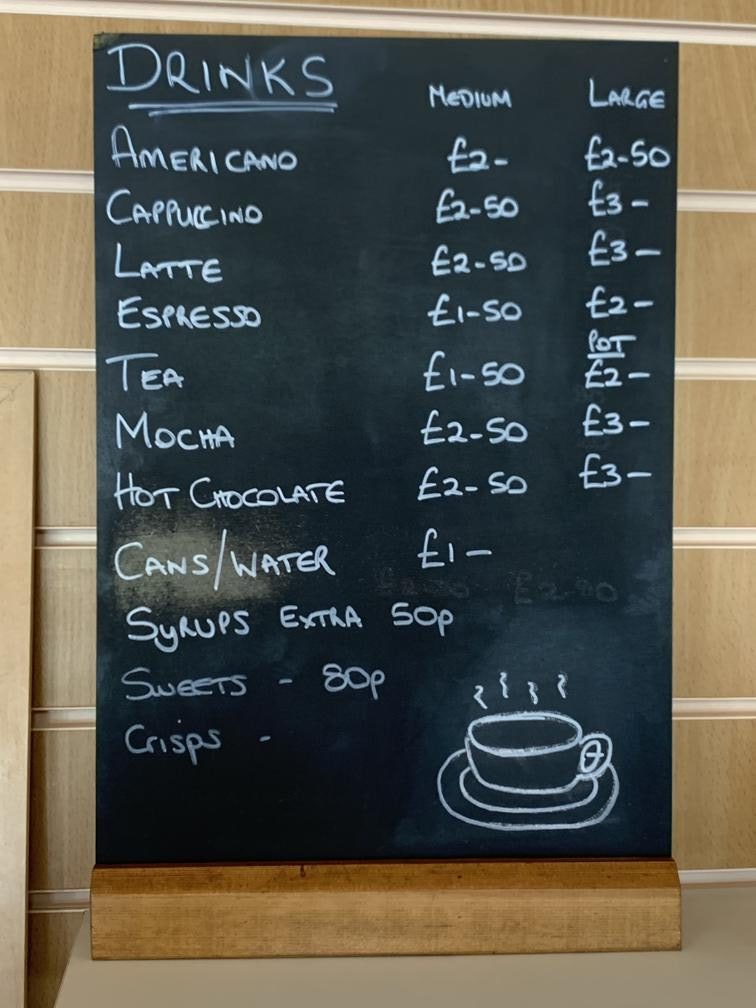 DRINKS MEDIUM LARGE
AMERICANO £2- £2-50
CAPPUCCINO £2-50 £3-
LATTE £2-50 £3-
ESPRESSO £1-50 £2-
POT
TEA £1-50 £2-
MOCHA £2-50 £3-
HOT CHOCOLATE £2-50 £3-
CANS/WATER £1-
SYRUPS EXTRA 50p
SWEETS - 80p
Crisps -